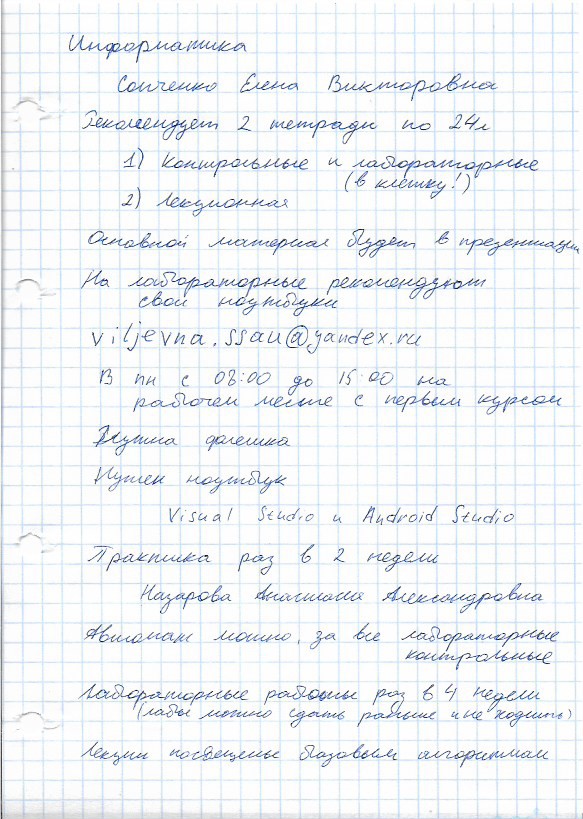 Информатика
Сопченко Елена Викторовна
Рекомендует 2 тетради по 24л
1) Контрольные и лабораторные
(в клетку!)
2) Лекционная
Основной материал будет в презентации
На лабораторные рекомендуют
свои ноутбуки
viljevna.ssau@yandex.ru
В пн с 08:00 до 15:00 на
рабочем месте с первым курсом
Нужна флешка
Нужен ноутбук
Visual Studio и Android Studio
Практика раз в 2 недели
Назарова Анастасия Александровна
Автомат можно, за все лабораторные
контрольные
Лабораторные работы раз в 4 недели
(лабы можно сдать раньше и не ходить)
Лекции посвещены базовым алгоритмам